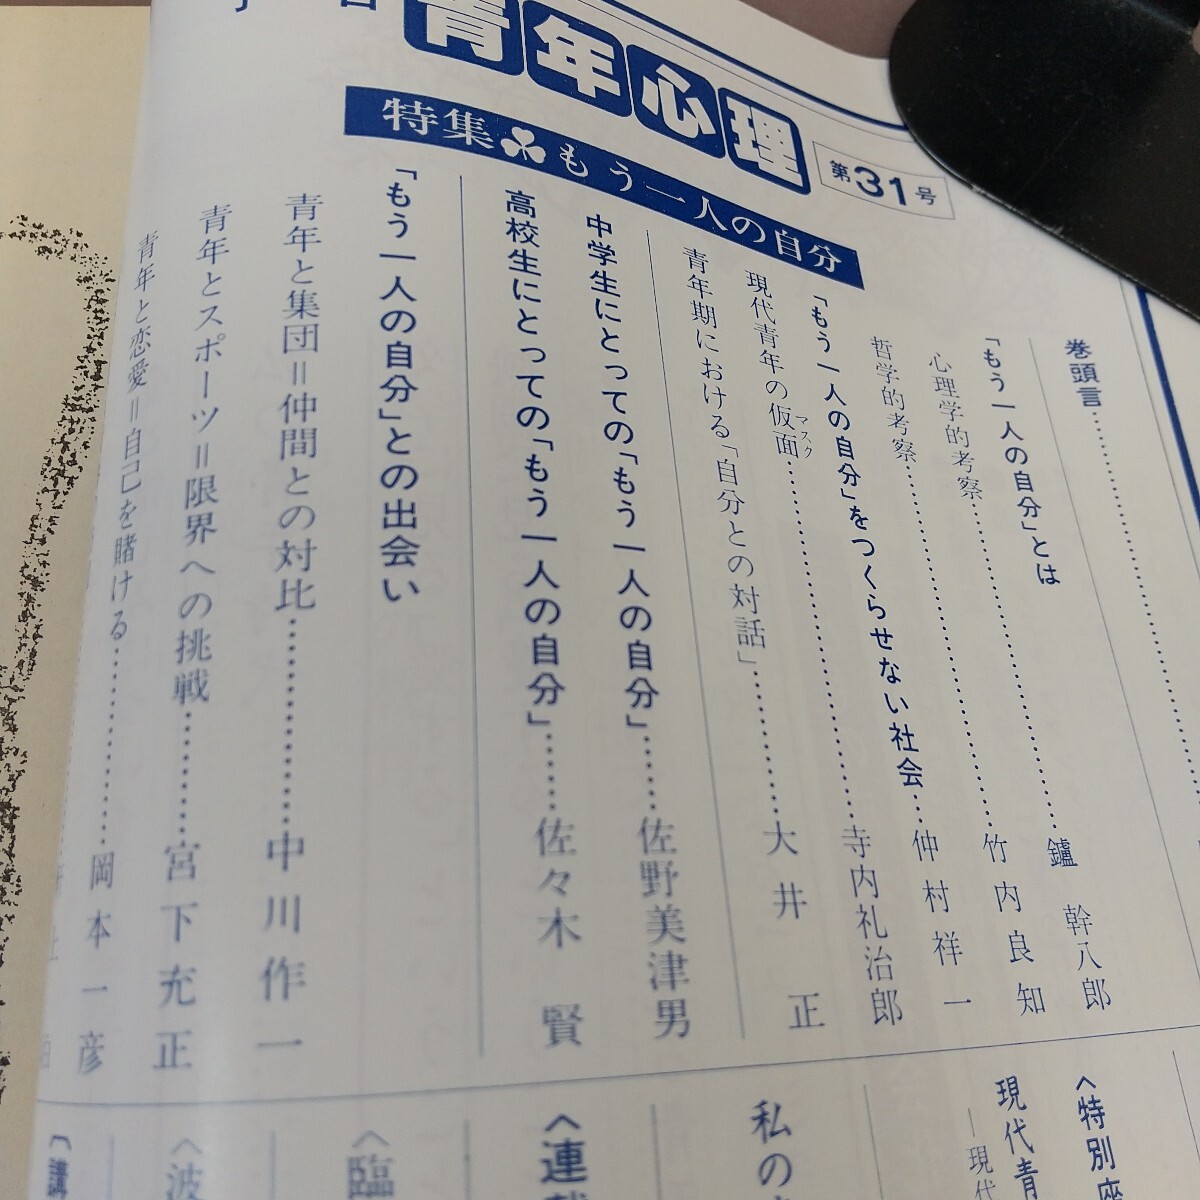 青年心理
第31号
特集♣もう一人の自分
巻頭言……………
「もう一人の自分」とは
心理学的考察……………鑪 幹八郎
哲学的考察……………竹内良知
「もう一人の自分」をつくらせない社会…仲村祥一
現代青年の仮面……………寺内礼治郎
マスク
青年期における「自分との対話」………大井 正
中学生にとっての「もう一人の自分」……佐野美津男
高校生にとっての「もう一人の自分」……佐々木 賢
「もう一人の自分」との出会い
青年と集団＝仲間との対比……………中川作一
青年とスポーツ＝限界への挑戦…………宮下充正
青年と恋愛＝自己を賭ける……………岡本一彦
〈特別座
現代青
―現代
私の
〈連載
〈臨
〈波
〔講